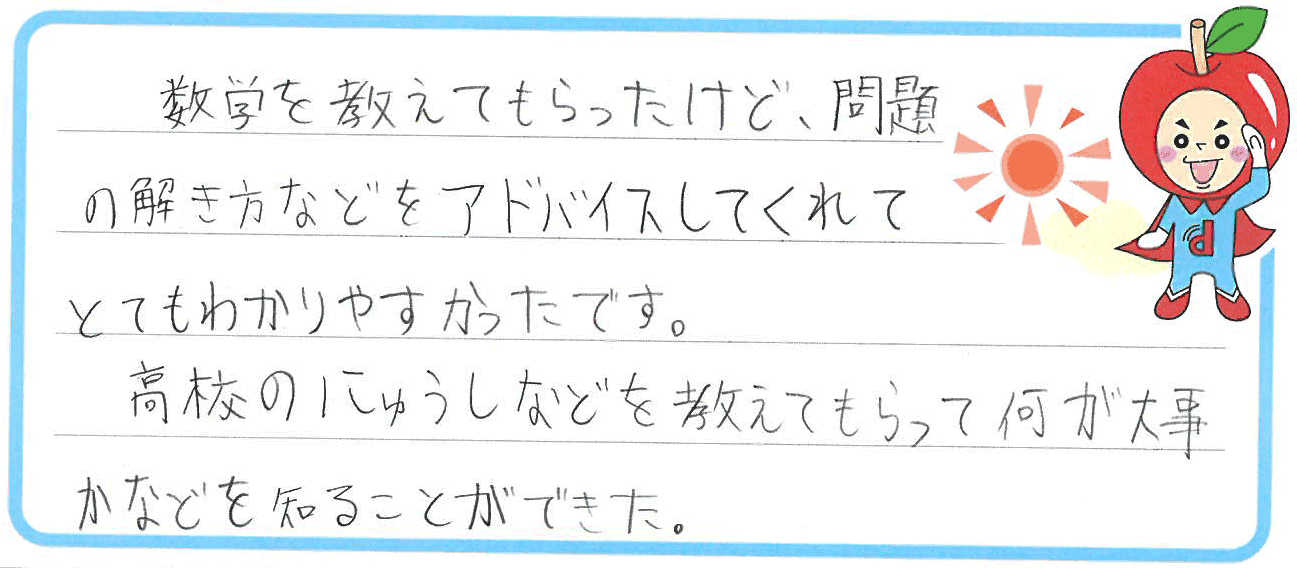 数学を教えてもらったけど、問題
の解き方などをアドバイスしてくれて
とてもわかりやすかったです。
高校のにゅうしなどを教えてもらって何が大事
かなどを知ることができた。
d